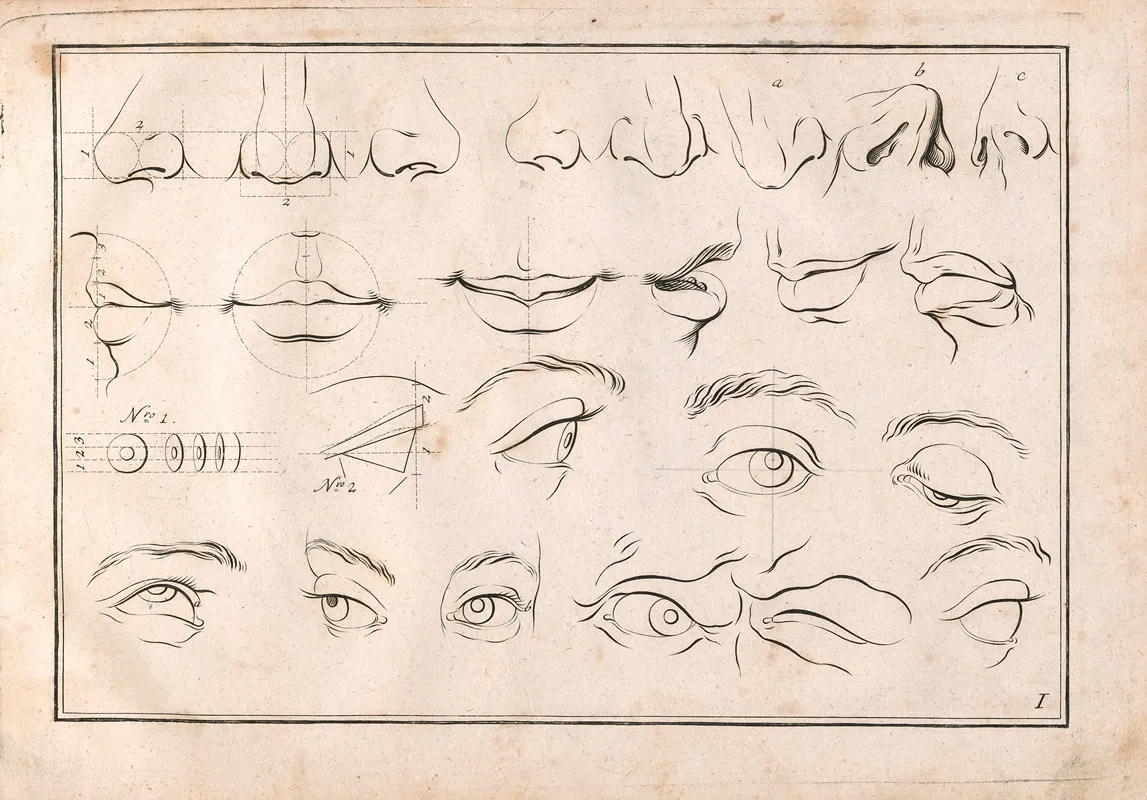 a
b
c
2
1
1
2
3
2
1
2
1
Nro 1.
3
2
1
2
1
Nro 2.
I